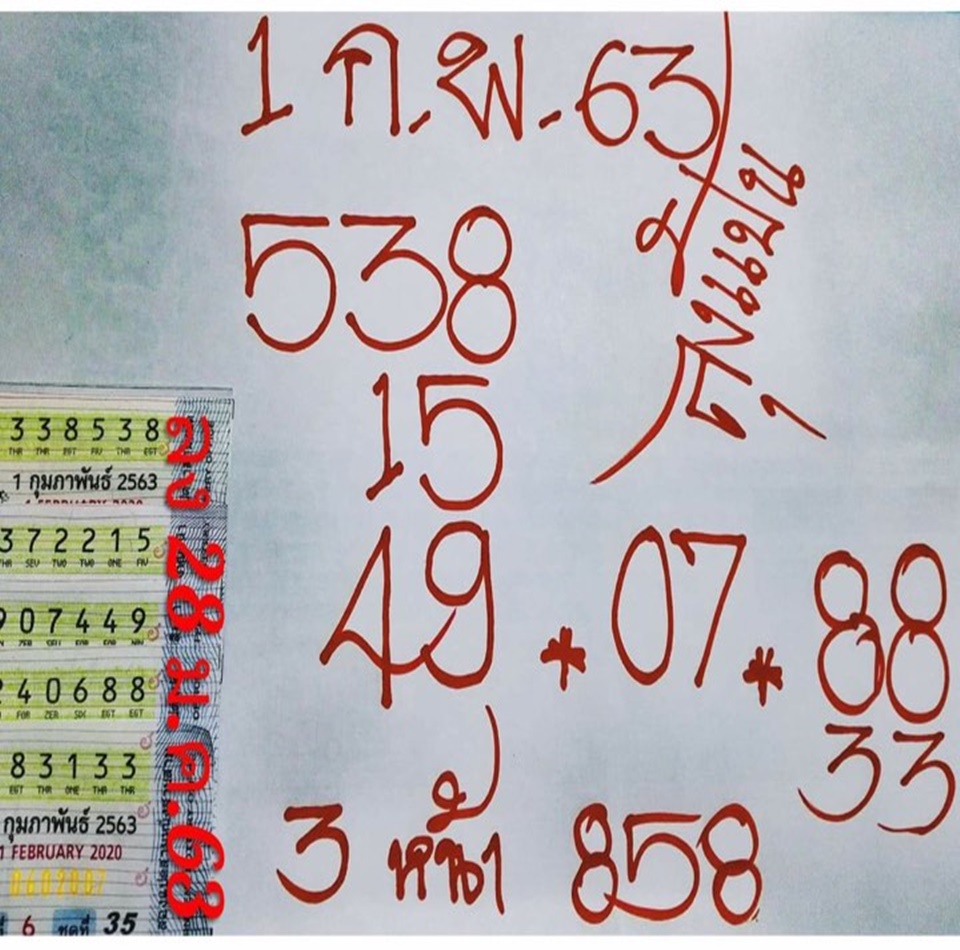 1 ก.พ. 63
538
15
49 * 07 * 88
33
3 หน้า 858
338538
THR THR EGT FIV THR EGT
1 กุมภาพันธ์ 2563
372215
THR SEV TWO TWO ONE FIV
907449
240688
FOR ZER SIX EGT EGT
83133
EGT THR ONE THR THR
กุมภาพันธ์ 2563
1 FEBRUARY 2020
6 ชุดที่ 35
ลง 28 ม.ค.63